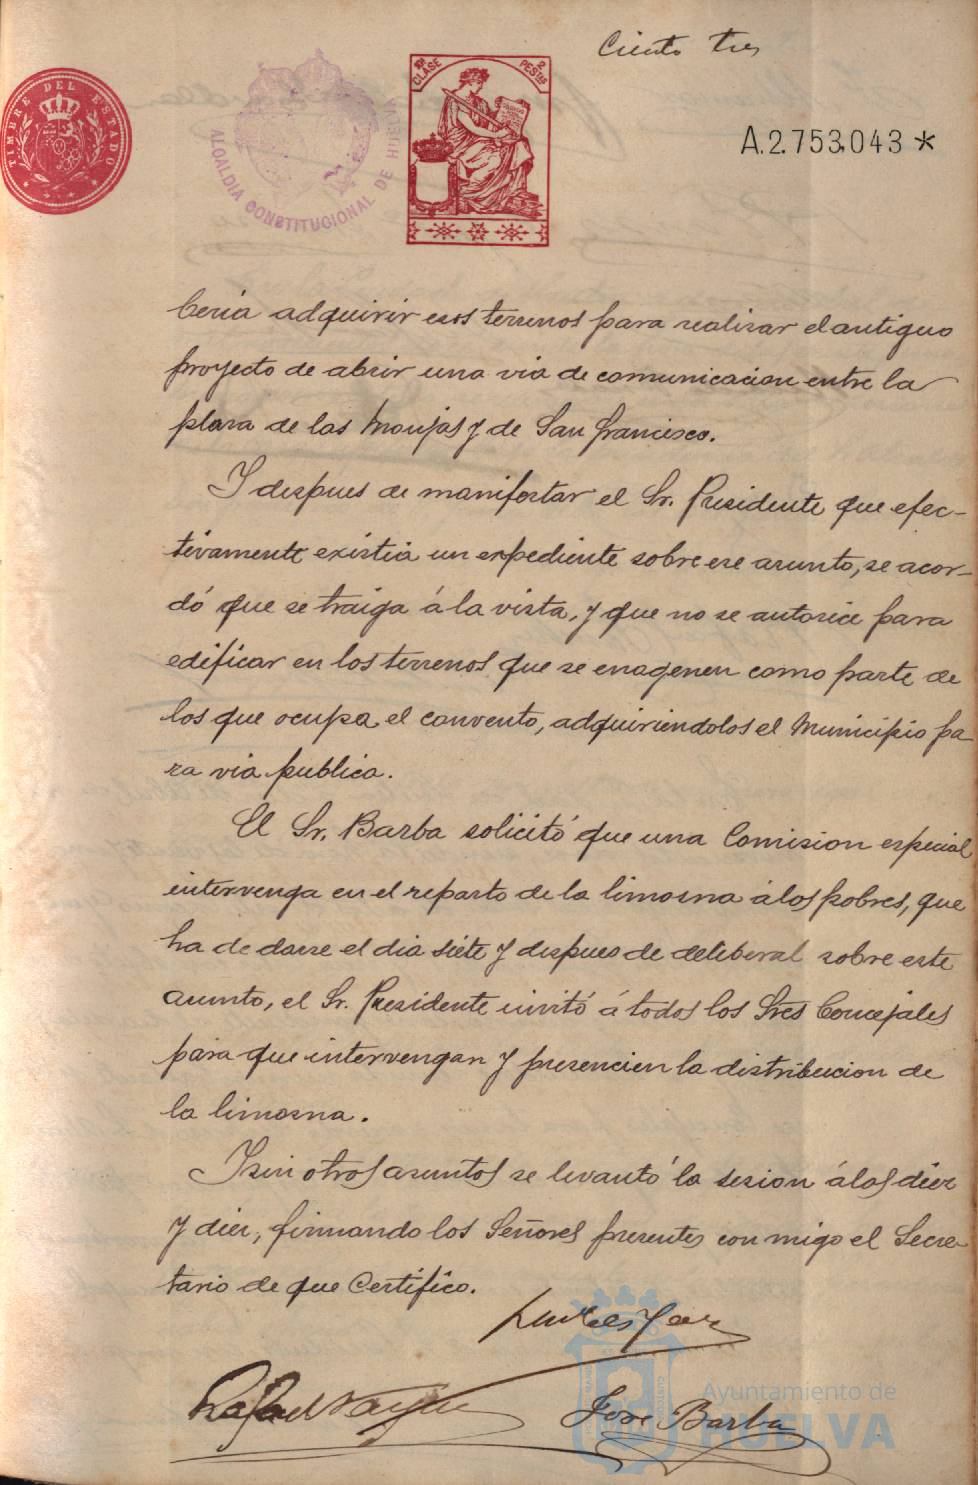 Ciento tres
TIMBRE DEL ESTADO
ALCALDIA CONSTITUCIONAL DE HUELVA
CLASE
2 PESTAS
A.2.753,043 *
beria adquirir esos terrenos para realizar el antiguo
proyecto de abrir una via de comunicacion entre la
plaza de las Monjas y de San Francisco.
Y despues de manifestar el Sr. Presidente que efec-
tivamente existia un expediente sobre ese asunto, se acor-
dó que se traiga á la vista, y que no se autorice para
edificar en los terrenos que se enagenen como parte de
los que ocupa el convento, adquiriendolos el Municipio pa
ra via publica.
El Sr. Barba solicitó que una Comision especial
intervenga en el reparto de la limosna á los pobres, que
ha de darse el dia siete y despues de deliberal sobre este
asunto, el Sr. Presidente invitó á todos los Sres Concejales
para que intervengan y presencien la distribucion de
la limosna.
Y sin otros asuntos se levantó la sesion á las diez
y diez, firmando los Señores presentes con migo el Secre-
tario de que Certifico.
Rafael
Jose Barba
Ayuntamiento de
HUELVA